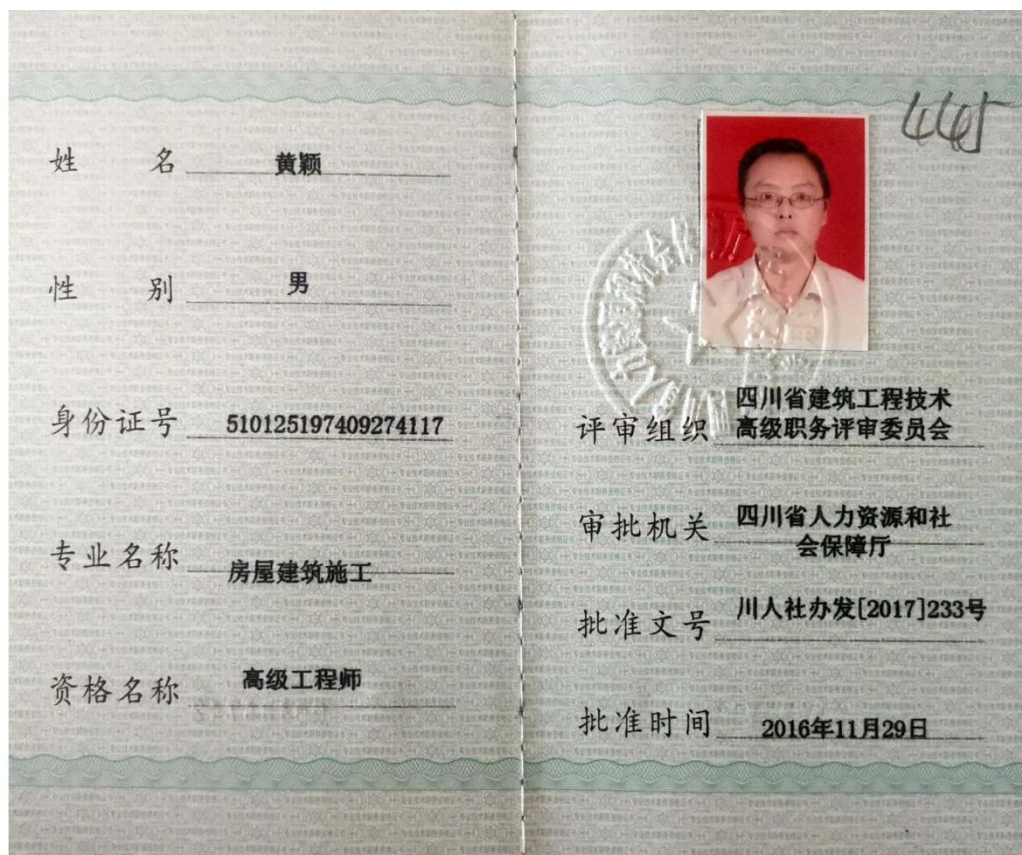 姓 名 黄颖
性 别 男
身份证号 510125197409274117
专业名称 房屋建筑施工
资格名称 高级工程师
445
评审组织 四川省建筑工程技术
高级职务评审委员会
审批机关 四川省人力资源和社
会保障厅
批准文号 川人社办发[2017]233号
批准时间 2016年11月29日